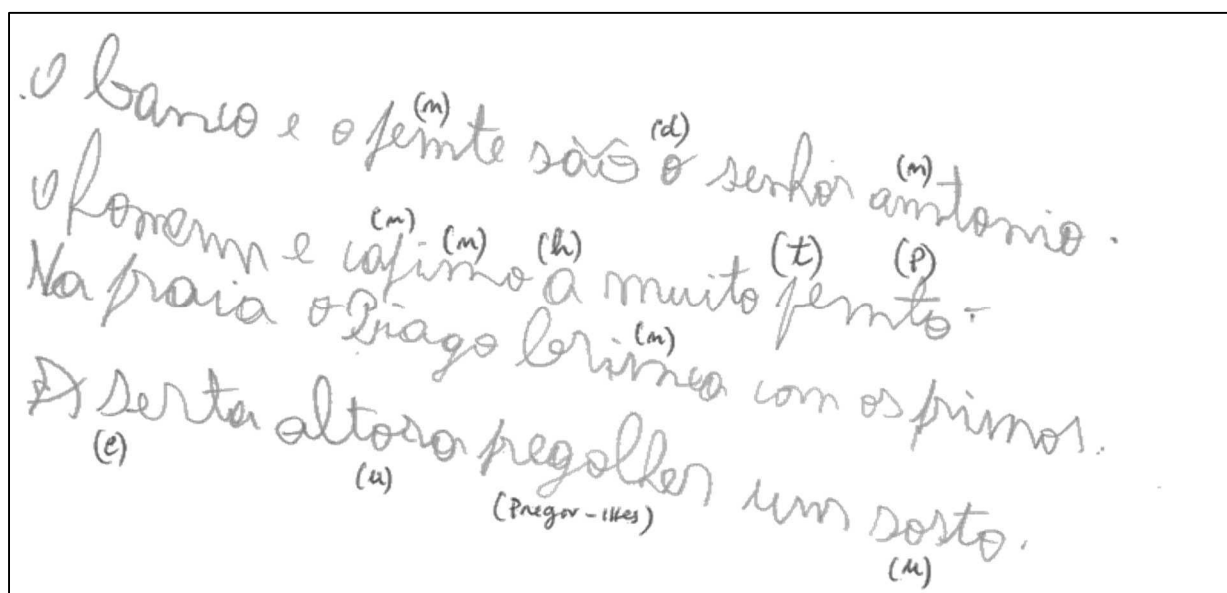 (n) (d) (n)
.O banco e o pemte são o senhor amtonio.
(n) (n) (h) (t) (p)
O homem e cafimo a muito pemto.
(n)
Na praia o Tiago brimca com os primos.
A serta altora pregolhes um sosto.
(e) (u) (Pregou-lhes) (u)